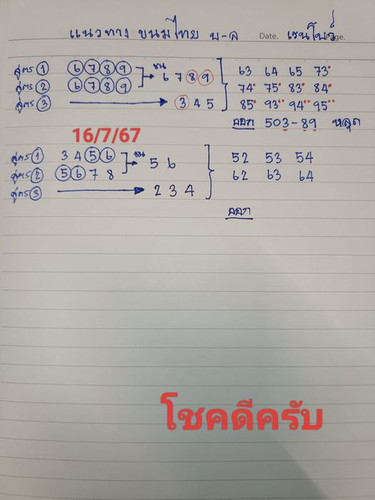 แนวทาง ขนมไทย บ-ล Date. เรนโบว์ age.
สูตร ① ⑥⑦⑧⑨ ชน 6 7 8 9 63 64 65 73
สูตร ② ⑥⑦⑧⑨ 74 75 83 84
สูตร ③ 3 4 5 85 93 94 95
ออก 503-89 หลุด
16/7/67
สูตร ① 3 4 ⑤⑥ ชน 5 6 52 53 54
สูตร ② ⑤⑥ 7 8 62 63 64
สูตร ③ 2 3 4
ออก
โชคดีครับ